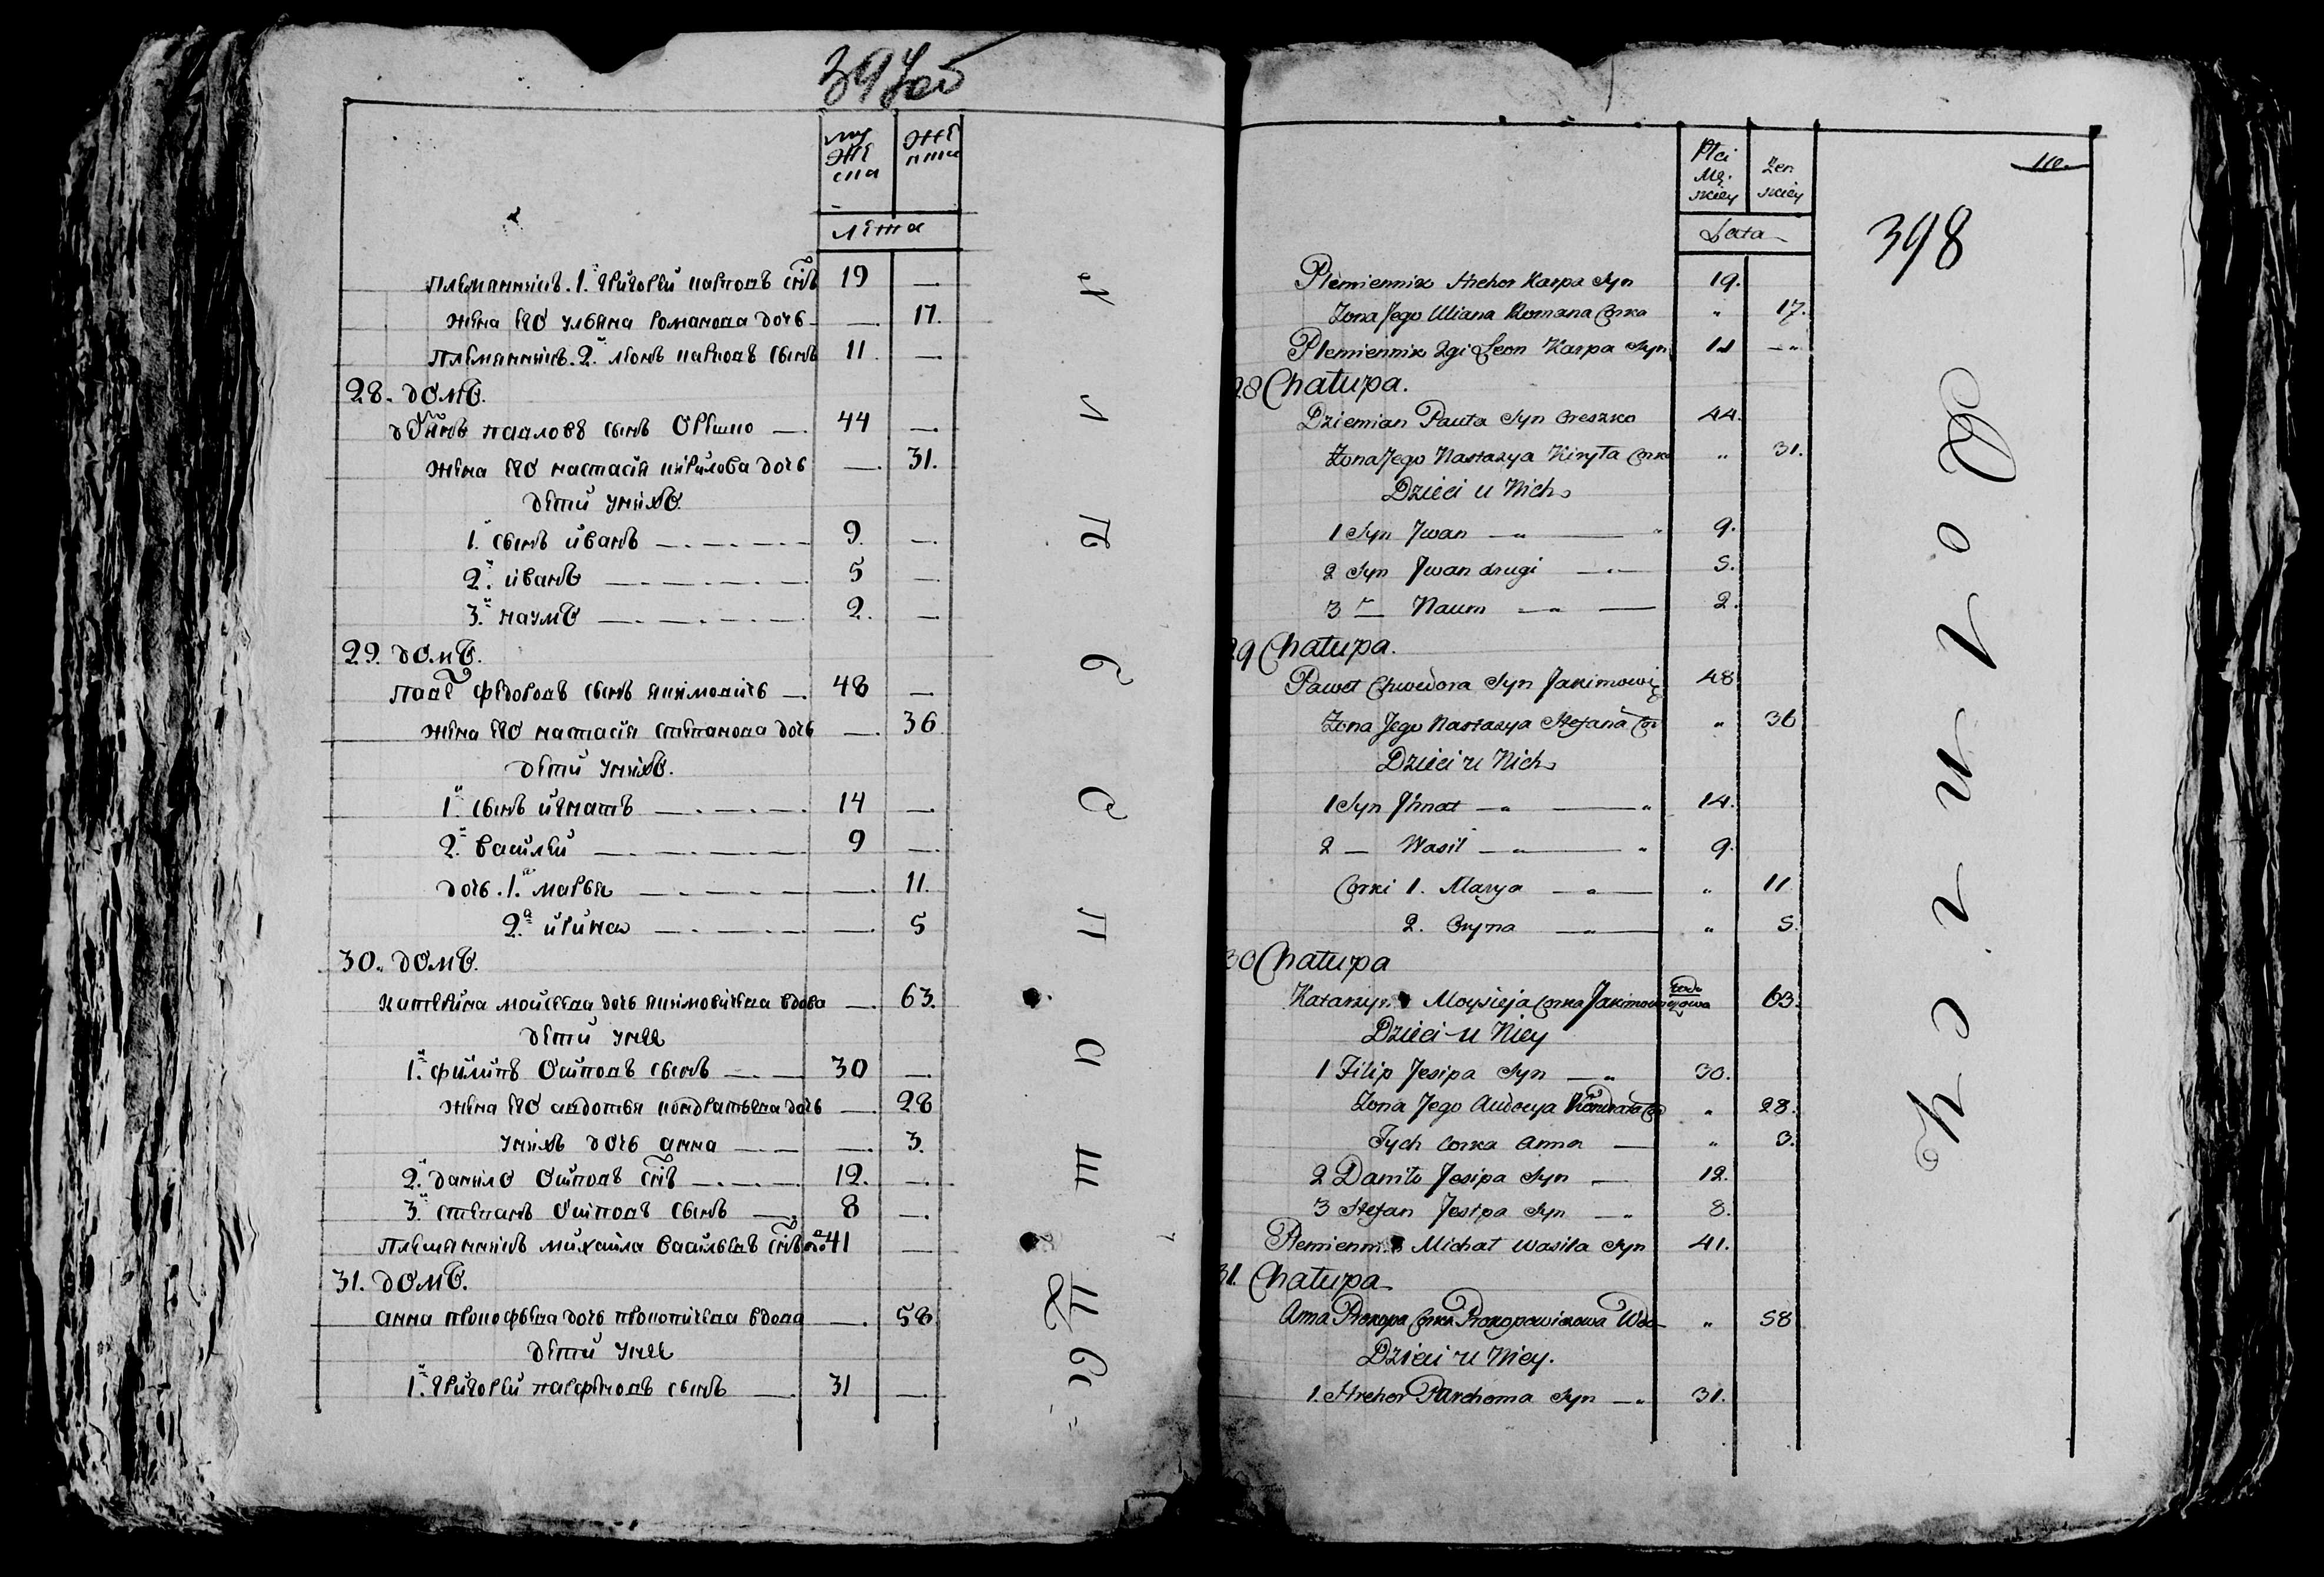 397 об
му
же
ска
же
нска
лета
племянникъ. 1.й григорей карповъ снъ 19 —
жена его ульяна романова дочь — 17.
племянникъ. 2.й леонъ карповъ сынъ 11 —
28. домъ.
павловъ сынъ орешко — 44 —
жена его настасія кирилова дочь — 31.
дети унихъ
1.й сынъ иванъ — 9. —
2.й иванъ — 5 —
3.й наумъ — 2. —
29. домъ.
паве федоровъ сынъ якимовичь — 48 —
жена его настасія степанова дочь — 36
дети унихъ.
1.й сынъ игнатъ — 14 —
2.й василей — 9 —
дочь. 1.я марья — 11.
2.а ирина — 5
30. домъ.
катерина моисеева дочь якимовичева вдова — 63.
дети унее
1.й филипъ осиповъ сынъ — 30 —
жена его авдотья кондратьева дочь — 28
унихъ дочь анна — 3.
2.й данило осиповъ снъ — 12. —
3.й степанъ осиповъ сынъ — 8 —
племянникъ михайла васильевъ снъ 41 —
31. домъ.
анна прокофьева дочь прокопичева вдова — 58
дети унее
1.й григорей парфеновъ сынъ — 31 —
Płci
Mę.
skiey
Zen
skiey
Lata
110.
398
Plemiennik Hrehor Karpa Syn 19.
Zona Jego Uliana Romana Corka " 17.
Plemiennik 2gi Leon Karpa Syn 11 — "
28 Chałupa.
Dziemian Pawła Syn Oreszko 44.
Zona Jego Nastazya Kiryła Corka " 31.
Dzieci u Nich
1 Syn Jwan — " — " 9.
2 Syn Jwan drugi — " — 5.
3 — Naum — " — 2.
29 Chałupa.
Paweł Chwedora Syn Jakimowicz 48
Zona Jego Nastazya Stefana Cor " 36
Dzieci u Nich
1 Syn Jhnat — " — " 14.
2 — Wasil — " — " 9.
Corki 1. Marya — " — " 11
2. Oryna — " — " 5.
30 Chałupa
Katarzyna Moysieja Corka Jakimowiczowa 63.
Dzieci u Niey
1 Filip Jesipa Syn — " 30.
Zona Jego Audocya Kondrata Co " 28.
Tych Corka Anna — " 3.
2 Daniło Jesipa Syn — 12.
3 Stefan Jesipa Syn — " 8.
Plemiennik Michał Wasila Syn 41.
31. Chałupa
Anna Prokopa Corka Prokopowiczowa Wdo " 58
Dzieci u Niey.
1. Hrehor Parchoma Syn — " 31.